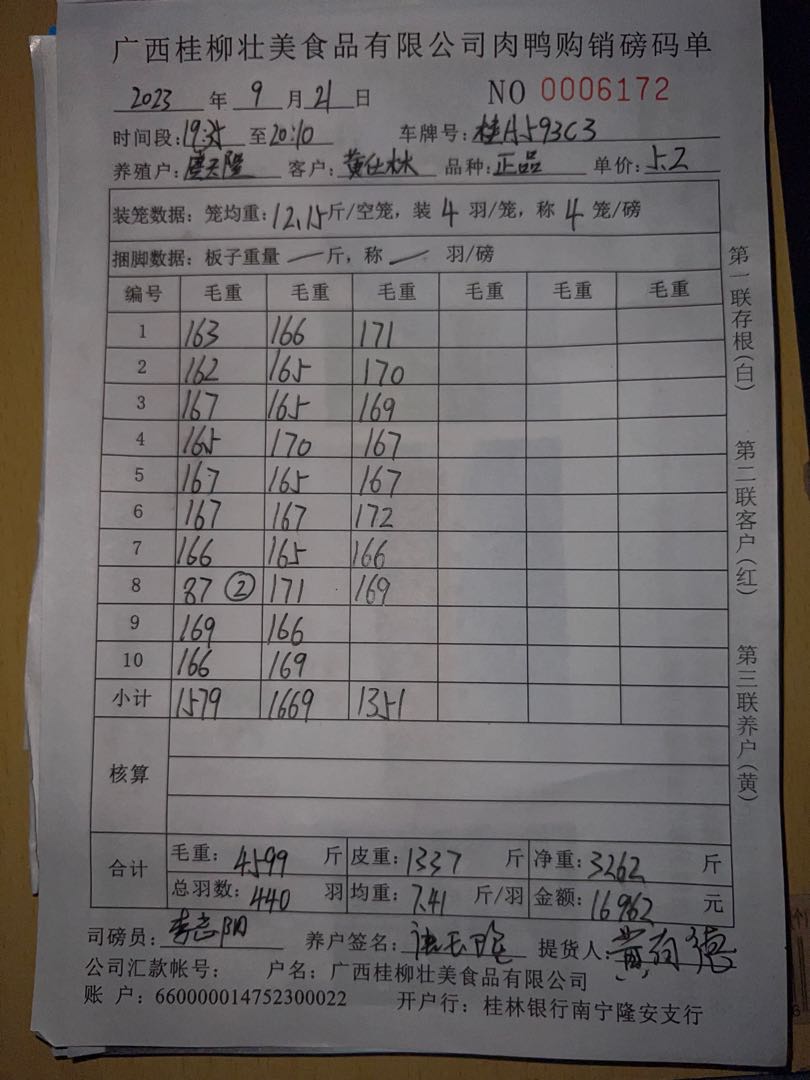 广西桂柳壮美食品有限公司肉鸭购销磅码单
2023 年 9 月 21 日 NO 0006172
时间段: 19:35 至 20:10 车牌号: 桂A593C3
养殖户: 客户: 黄仕林 品种: 正品 单价: 5.2
装笼数据: 笼均重: 12.15 斤/空笼, 装 4 羽/笼, 称 4 笼/磅
捆脚数据: 板子重量 — 斤, 称 — 羽/磅
编号 毛重 毛重 毛重 毛重 毛重 毛重
1 163 166 171
2 162 165 170
3 167 165 169
4 165 170 167
5 167 165 167
6 167 167 172
7 166 165 166
8 87 ② 171 169
9 169 166
10 166 169
小计 1579 1669 1351
核算
合计
毛重: 4599 斤 皮重: 1337 斤 净重: 3262 斤
总羽数: 440 羽 均重: 7.41 斤/羽 金额: 16962 元
司磅员: 李志阳 养户签名: 提货人:
公司汇款帐号: 户名: 广西桂柳壮美食品有限公司
账 户: 660000014752300022 开户行: 桂林银行南宁隆安支行
第一联存根(白)
第二联客户(红)
第三联养户(黄)